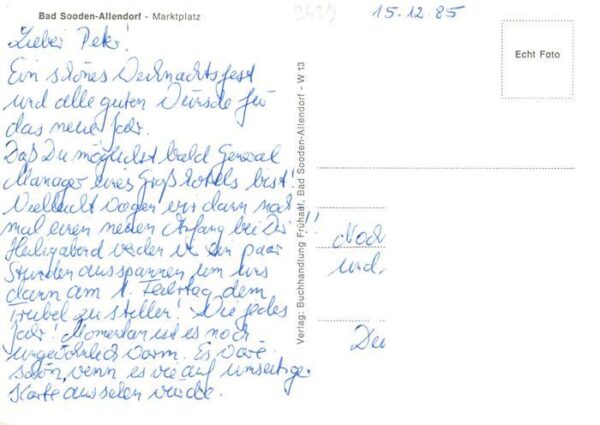 Bad Sooden-Allendorf - Marktplatz
3434
15.12.85
Echt Foto
Lieber Peter!
Ein schönes Weihnachtsfest
und alle guten Wünsche für
das neue Jahr.
Daß Du möglichst bald General
Manager eines Großhotels bist!
Vielleicht wagen wir dann noch
mal einen neuen Anfang bei Dir!!
Heiligabend werden wir ein paar
Stunden ausspannen um uns
dann am 1. Feiertag dem
Trubel zu stellen! Wie jedes
Jahr! Momentan ist es noch
ungewöhnlich warm. Es wäre
schön, wenn es wie auf umseitiger
Karte aussehen würde.
Verlag: Buchhandlung Frühauf, Bad Sooden-Allendorf - W 13
Noch
und